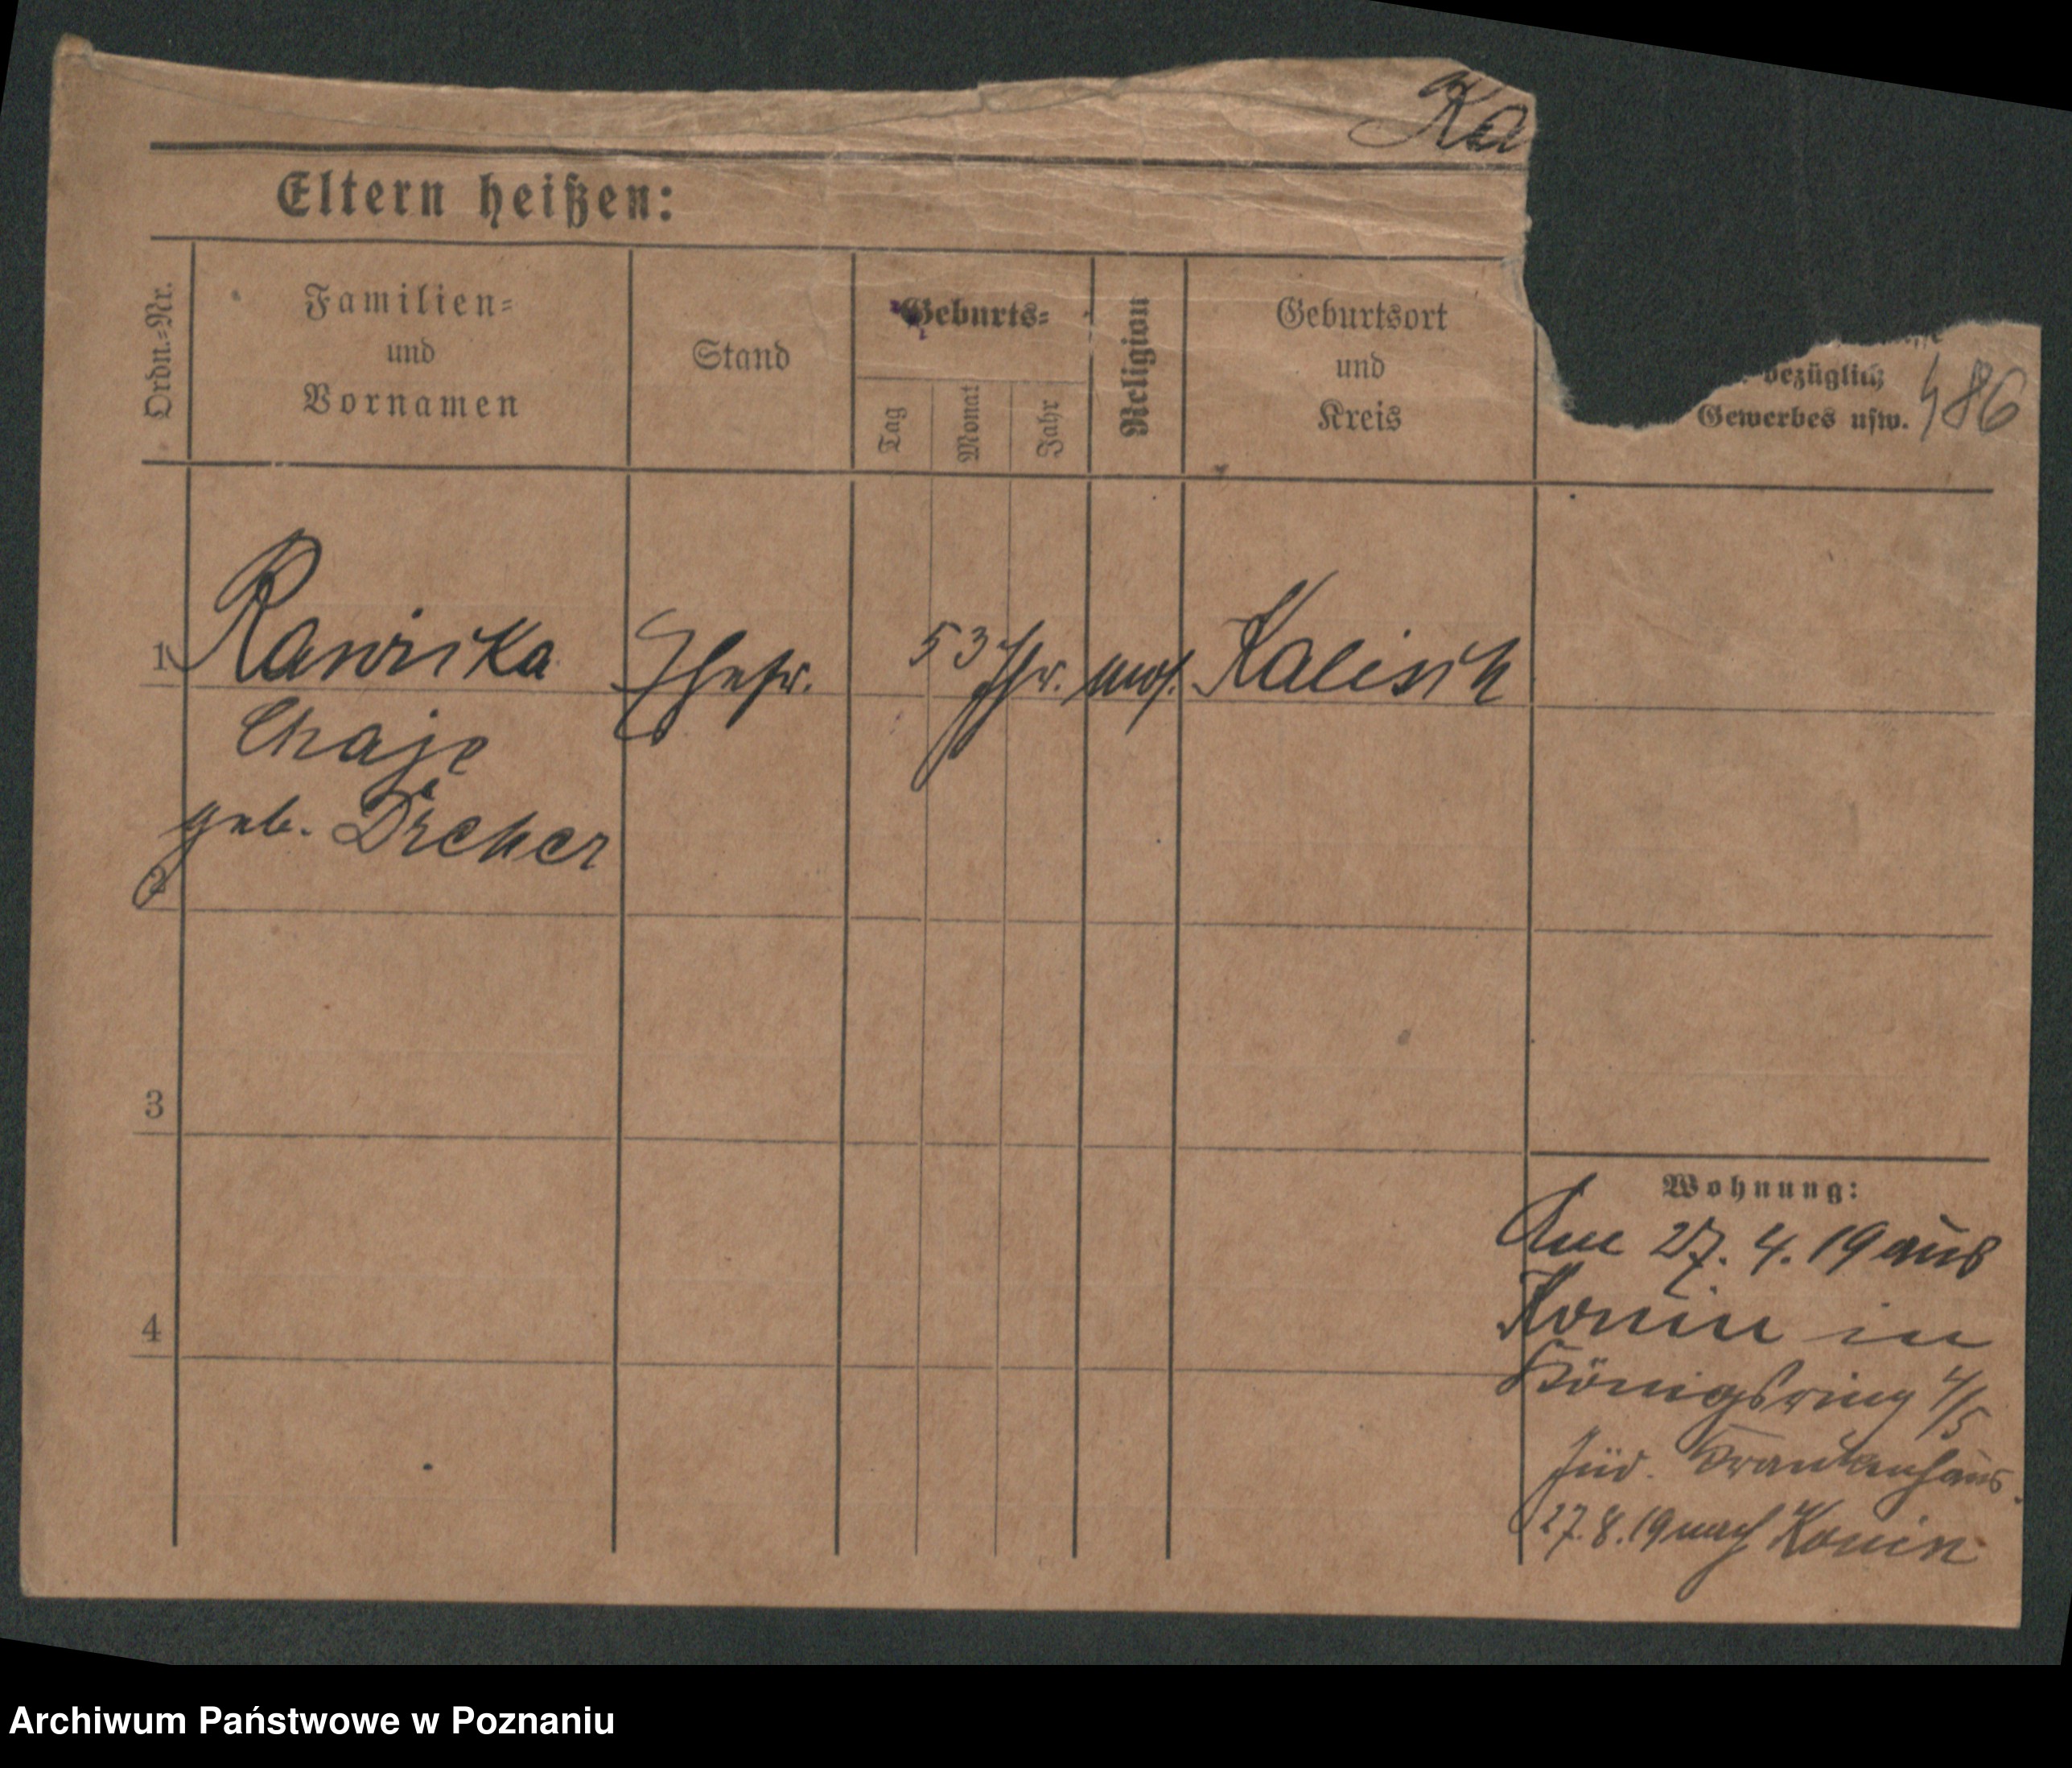 Ka
Eltern heißen:
Ordn.=Nr.
Familien=
und
Vornamen
Stand
Geburts=
Tag
Monat
Jahr
Religion
Geburtsort
und
Kreis
bezüglich
Gewerbes usw.
486
1
Rawicka
Ehefr.
53 Jhr.
mos.
Kalisch
Chaje
geb. Dreher
2
3
4
Wohnung:
Am 27. 4. 19 aus
Konin in
Königsring 4/5
Jüd. Krankenhaus.
27.8.19 nach Konin
Archiwum Państwowe w Poznaniu